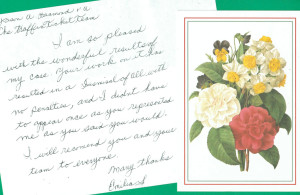 The Traffic Ticket Team
I am so pleased
with the wonderful results of
my case. Your work on it has
resulted in a Dismissal of all with
no penalties, and I didn't have
to appear once as you represented
me as you said you would.
I will recomend you and your
team to everyone.
Many thanks